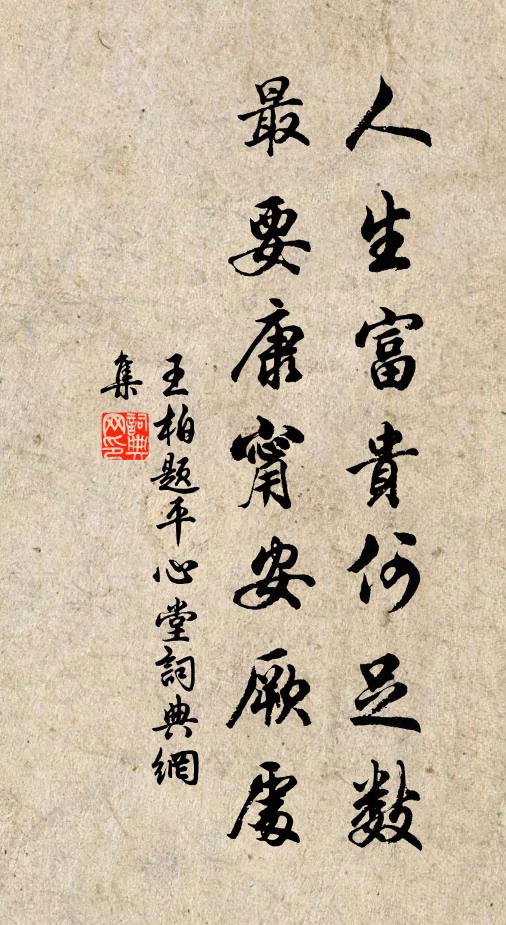 人生富貴何足数
最要康甯安厥處
王柏題平心堂詞典網
集
詞典網印